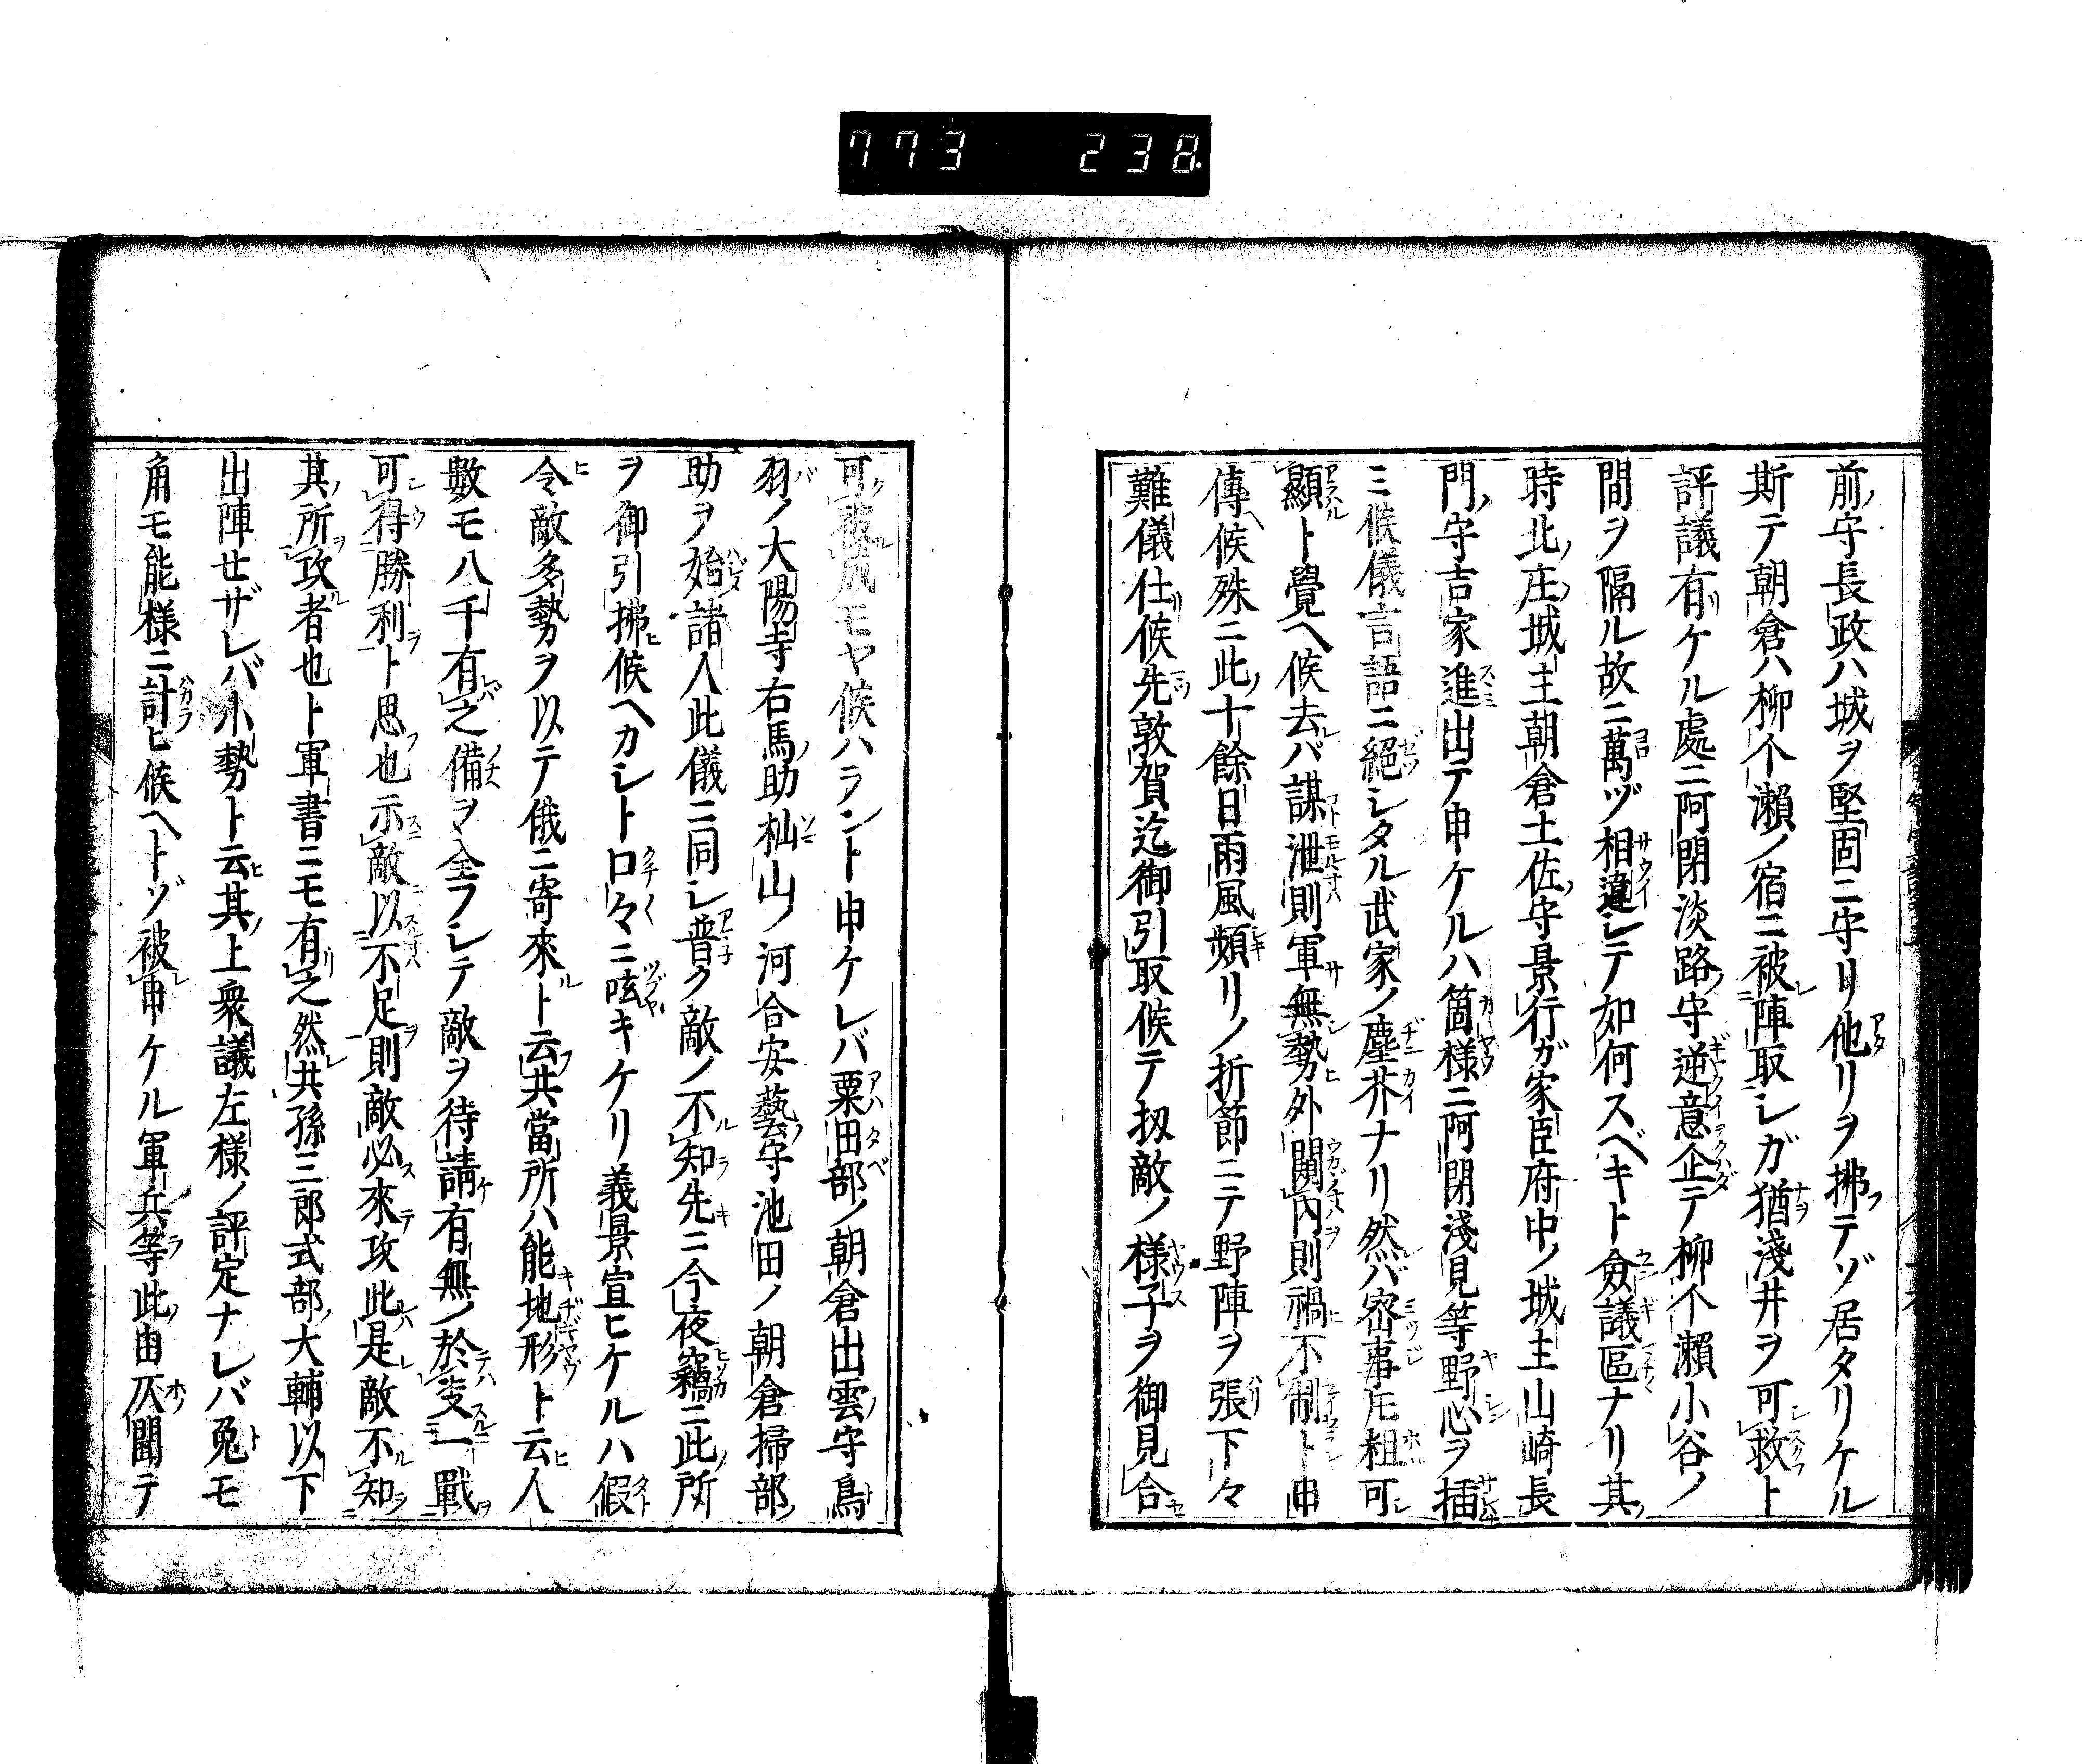 773 238
前守長政ハ城ヲ堅固ニ守リ他リヲ拂テゾ居タリケル
斯テ朝倉ハ柳个瀬ノ宿ニ被陣取シガ猶淺井ヲ可救ト
評議有ケル處ニ阿閉淡路守逆意企テ柳个瀬小谷ノ
間ヲ隔ル故ニ萬ヅ相違シテ如何スベキト僉議區ナリ其
時北庄城主朝倉土佐守景行ガ家臣府中ノ城主山崎長
門守吉家進出テ申ケルハ箇様ニ阿閉淺見等野心ヲ插
ミ候儀言語ニ絕シタル武家ノ塵芥ナリ然バ密事圧粗可
顯ト覺ヘ候去バ謀泄則軍無勢外闚内則禍不制ト申
傳候殊ニ此十餘日雨風頻リノ折節ニテ野陣ヲ張下々
難儀仕候先敦賀迄御引取候テ扨敵ノ様子ヲ御見合
可被成モヤ候ハラント申ケレバ粟田部ノ朝倉出雲守鳥
羽ノ大陽寺右馬助杣山ノ河合安藝守池田ノ朝倉掃部
助ヲ始諸人此儀ニ同シ普ク敵ノ不知先ニ今夜竊ニ此所
ヲ御引拂候ヘカシト口々ニ呟キケリ義景宣ヒケルハ假
令敵多勢ヲ以テ俄ニ寄來ト云共當所ハ能地形ト云人
數モ八千有之備ヲ全フシテ敵ヲ待請有無ノ於安一戰
可得勝利ト思也示敵以不足則敵必來攻此是敵不知
其所攻者也ト軍書ニモ有之然共孫三郎式部大輔以下
出陣せザレバ小勢ト云其上衆議左様ノ評定ナレバ兔モ
角モ能様ニ計ヒ候ヘトゾ被申ケル軍兵等此由仄聞テ